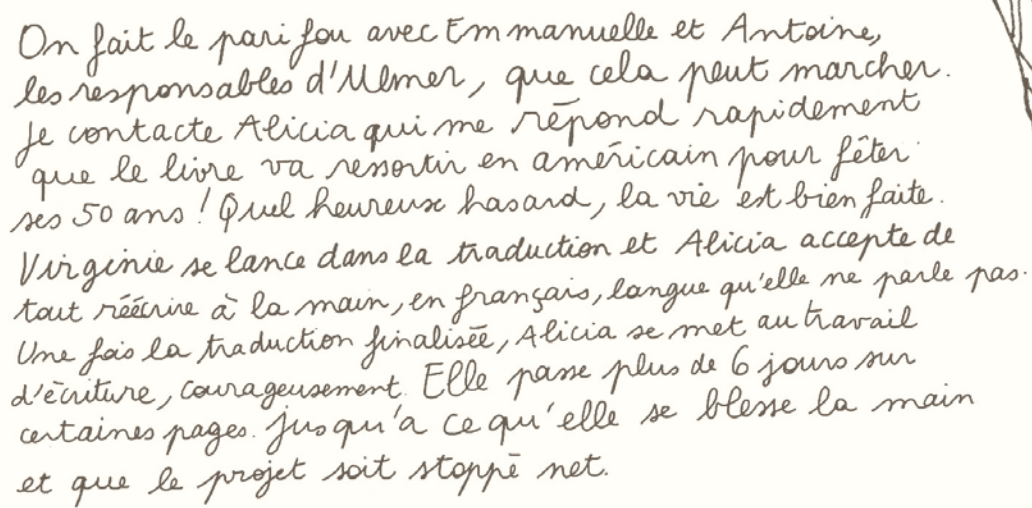 On fait le pari fou avec Emmanuelle et Antoine,
les responsables d'Ulmer, que cela peut marcher.
Je contacte Alicia qui me répond rapidement
que le livre va ressortir en américain pour fêter
ses 50 ans ! Quel heureux hasard, la vie est bien faite.
Virginie se lance dans la traduction et Alicia accepte de
tout réécrire à la main, en français, langue qu'elle ne parle pas.
Une fois la traduction finalisée, Alicia se met au travail
d'écriture, courageusement. Elle passe plus de 6 jours sur
certaines pages. Jusqu'a ce qu'elle se blesse la main
et que le projet soit stoppé net.